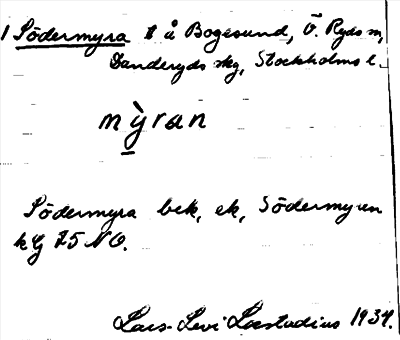 1 Södermyra t å Bogesund, Ö. Ryds sn,
Danderyds skg, Stockholms l.
mỳran
Södermyra bek, ek, Södermyran
kG 75 NO.
Lars-Levi Læstadius 1934.